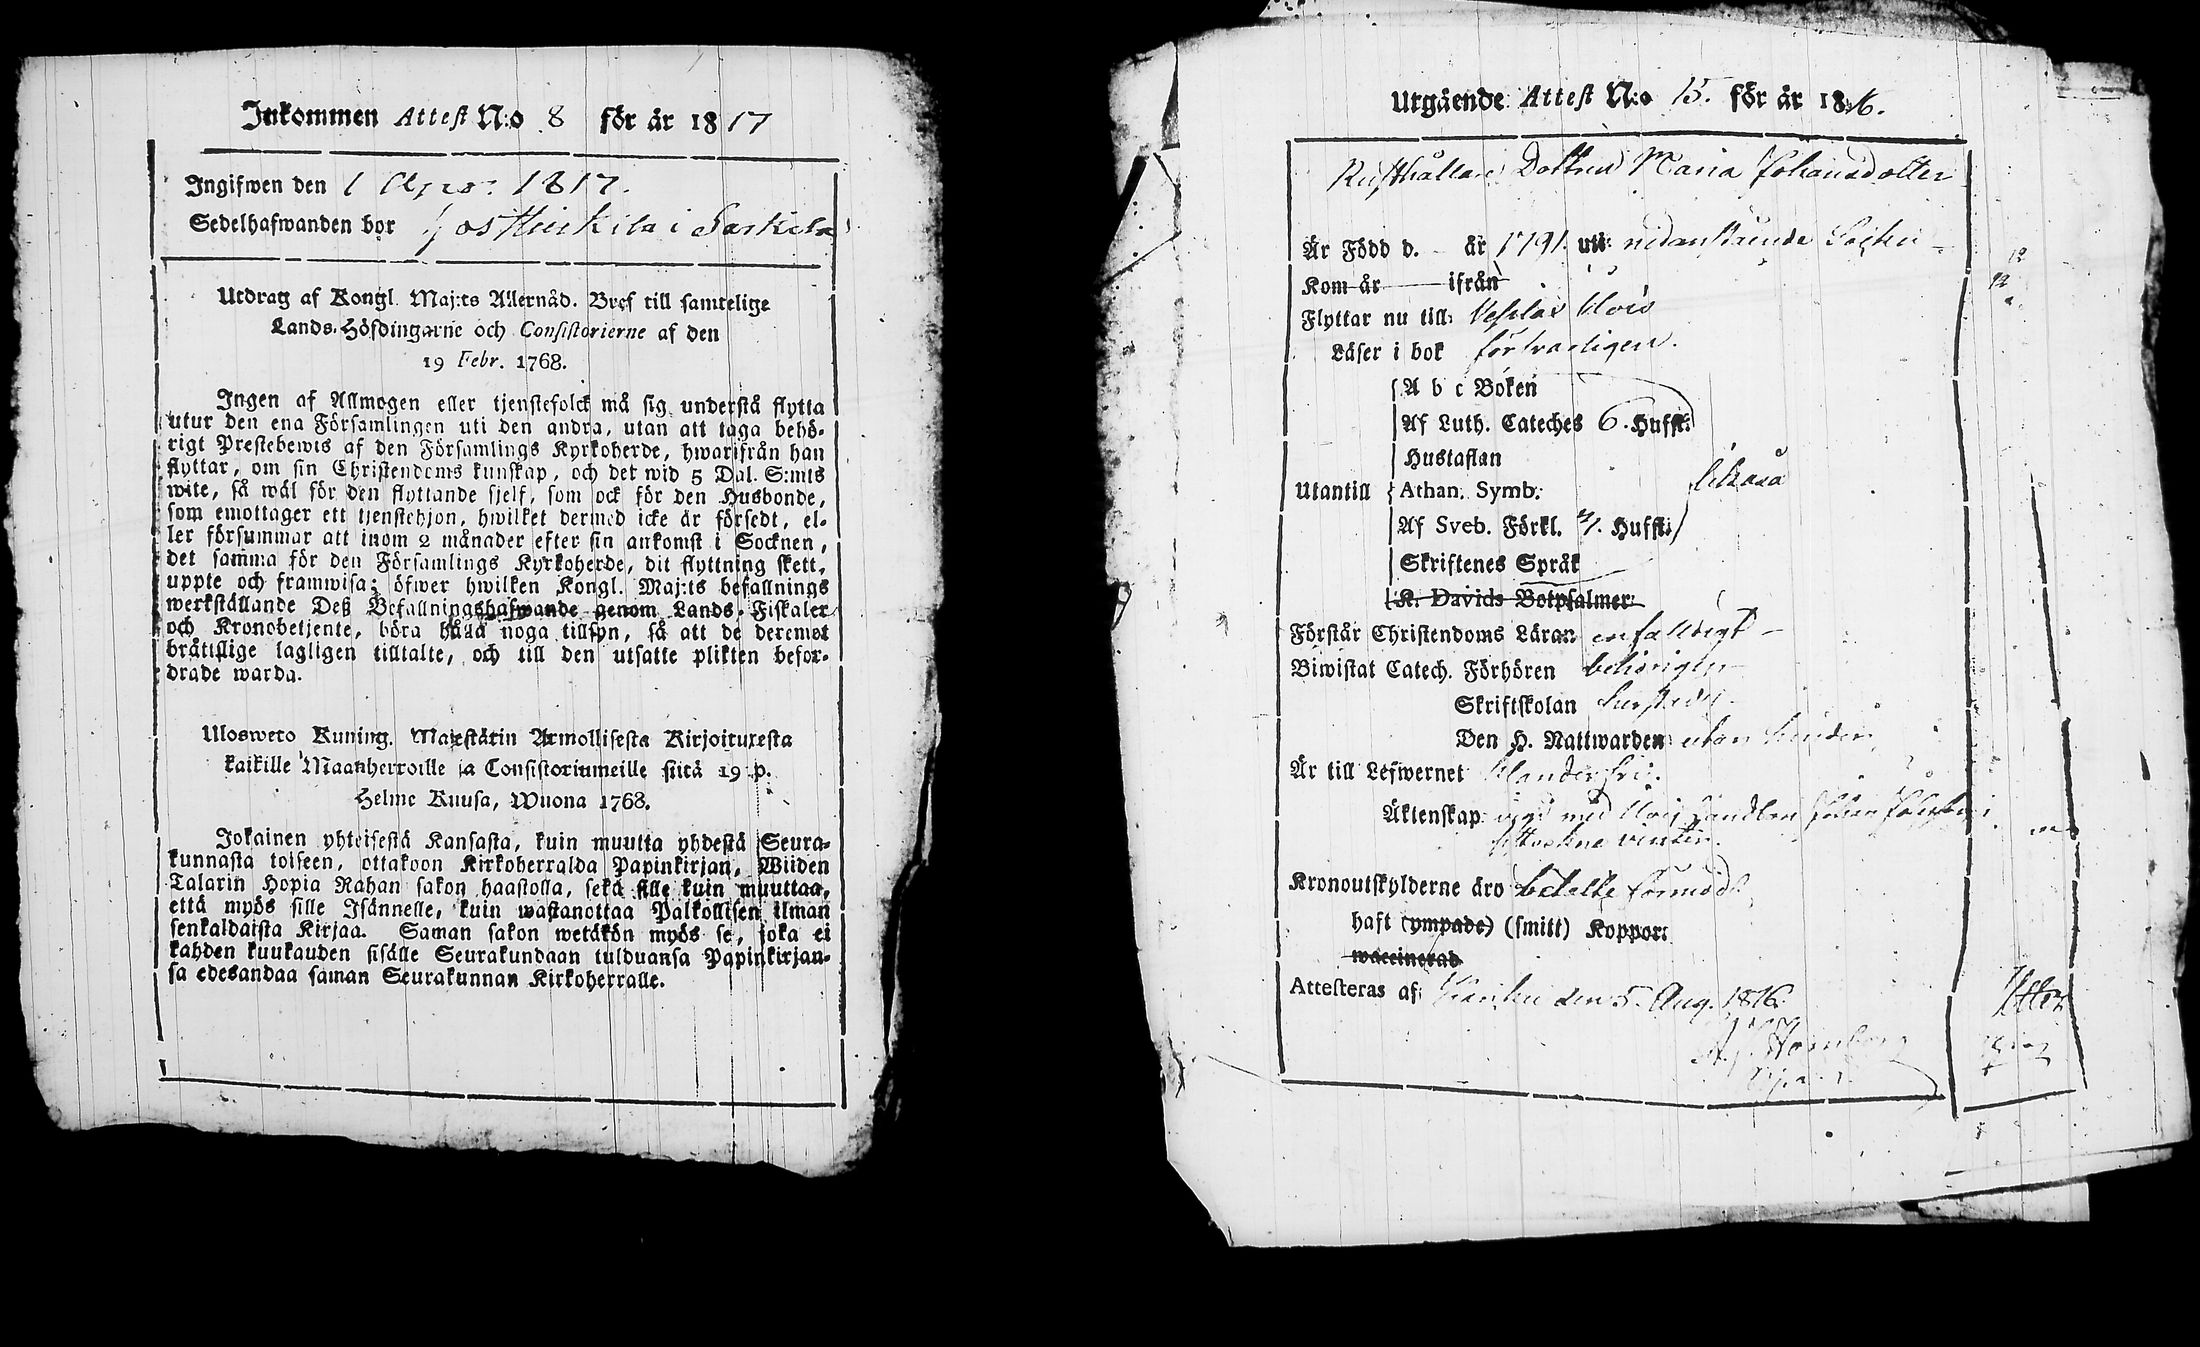 Inkommen Attest N:o 8 för år 1817
Ingifwen den 1 Apr. 1817.
Sedelhafwanden bor i Sarkila
Utdrag af Kongl. Maj:ts Allernåd. Bref till samtelige
Lands-Höfdingarne och Consistorierne af den
19 Febr. 1768.
Ingen af Allmogen eller tjenstefolck må sig understå flytta
utur den ena Församlingen uti den andra, utan att taga behö-
rigt Prestebewis af den Församlings Kyrkoherde, hwarifrån han
flyttar, om sin Christendoms kunskap, och det wid 5 Dal. S:mts
wite, så wäl för den flyttande sjelf, som ock för den Husbonde,
som emottager ett tjenstehjon, hwilket dermed icke är försedt, el-
ler försummar att inom 2 månader efter sin ankomst i Socknen,
det samma för den Församlings Kyrkoherde, dit flyttning skett,
uppte och framwisa; öfwer hwilken Kongl. Maj:ts befallnings
werkställande Deß Befallningshafwande genom Lands-Fiskaler
och Kronobetjente, böra hålla noga tillsyn, så att de deremot
bråttslige lagligen tilltalte, och till den utsatte plikten befor-
drade warda.
Ulosweto Kuning. Majestätin Armollisesta Kirjoituxesta
kaikille Maanherroille ja Consistoriumeille siitä 19 p.
Helme Kuusa, Wuona 1768.
Jokainen yhteisestä Kansasta, kuin muutta yhdestä Seura-
kunnasta toiseen, ottakoon Kirkoherralda Papinkirjan, Wiiden
Talarin Hopia Rahan sakon haastolla, sekä sille kuin muuttaa,
että myös sille Isännelle, kuin wastanottaa Palkollisen ilman
senkaldaista Kirjaa. Saman sakon wetäkön myös se, joka ei
kahden kuukauden sisälle Seurakundaan tulduansa Papinkirjan-
sa edesandaa saman Seurakunnan Kirkoherralle.
Utgående Attest N:o 15. för år 1816.
Rusthållare Dottren Maria Johansdotter
Är Född d. – år 1791. uti nedanstående Socken –
Kom år ifrån
Flyttar nu till: Wesilax
Läser i bok försvarligen.
A b c Boken
Af Luth. Cateches 6. Huffst:
Hustaflan
Utantill Athan. Symb:
Af Sveb. Förkl. Huffst:
Skriftenes Språk
K. Davids Botpsalmer
Förstår Christendoms Läran enfalldigt –
Biwistat Catech. Förhören behörigen
Skriftskolan
Den H. Nattwarden utan hinder
Är till Lefwernet klanderfri.
Äktenskap med Johan
Kronoutskylderne äro betalte
haft (ympade) (smitt) Koppor:
waccinerad
Attesteras af: Karku den 5. Aug. 1816.